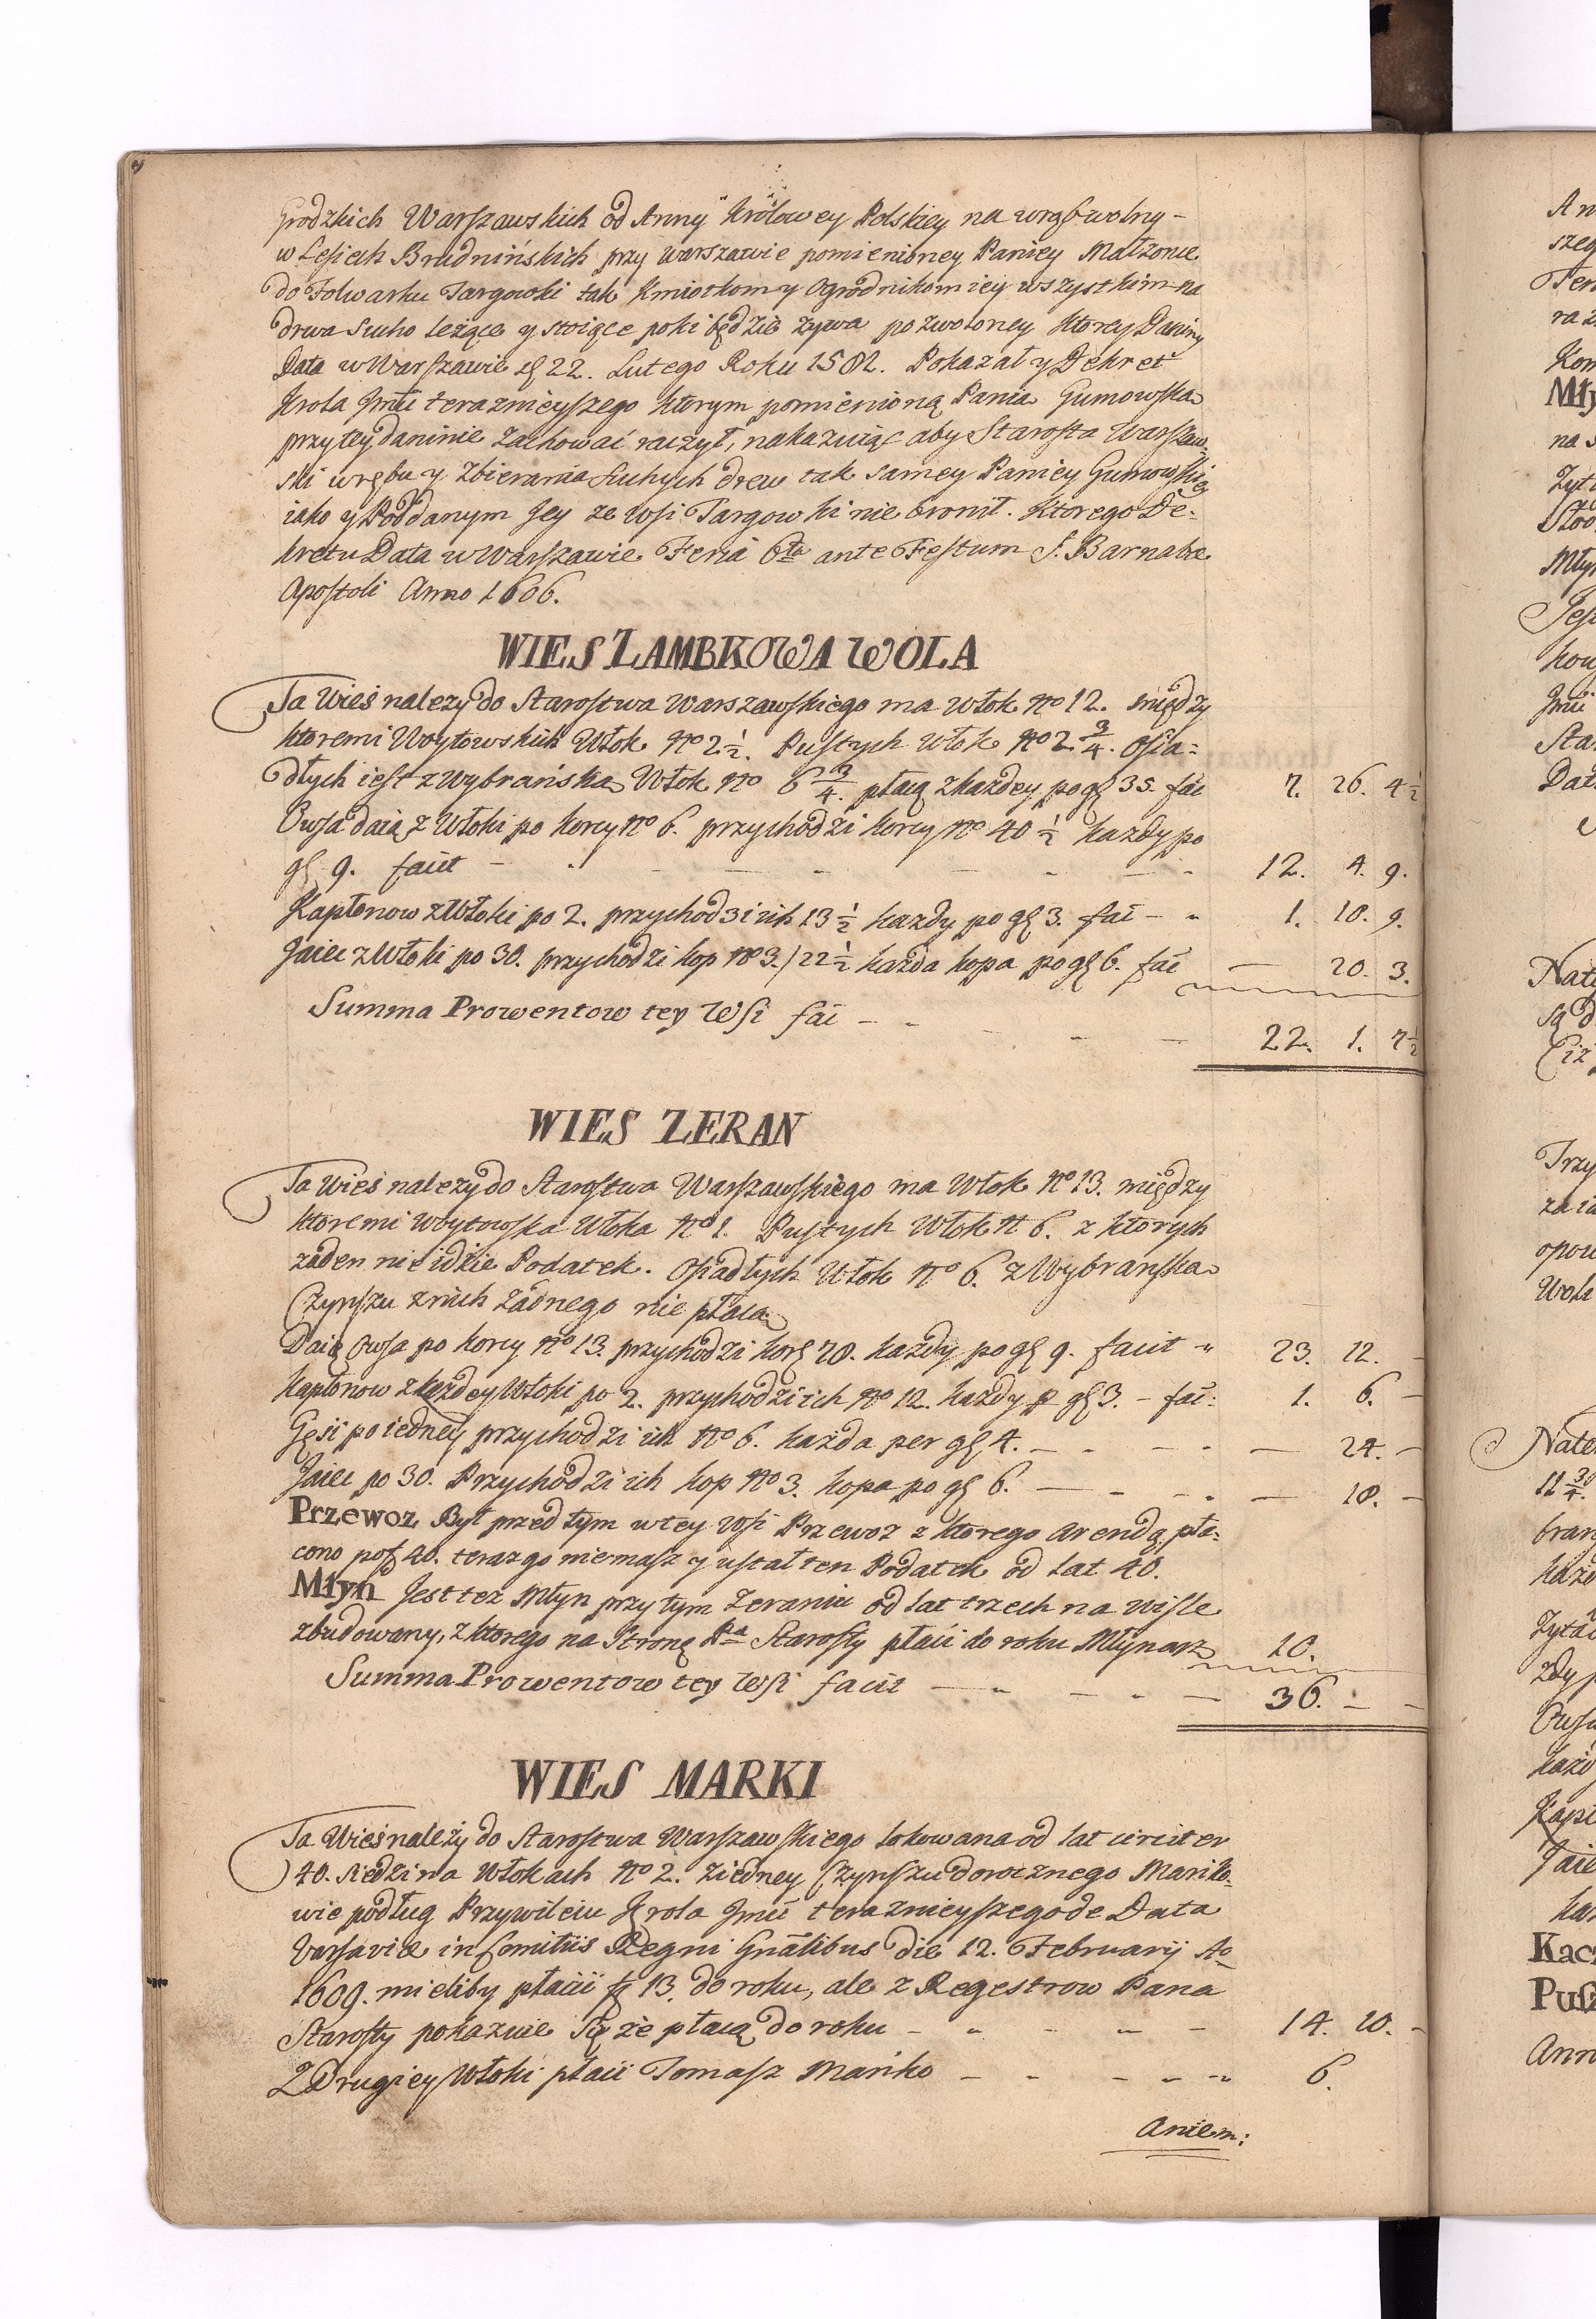 Grodzkich Warszawskich od Anny Królowey Polskiey na wrąb wolny -
w Lesiech Brudnińskich przy Warszawie pomienioney Paniey Małżonce
do Folwarku Targowki tak Kmiotkom y Ogrodnikom iey wszystkim na
drwa sucho leżące y stoiące poki będzie żywa pozwoloney ktorey Daniny
Data w Warszawie 22. Lutego Roku 1582. Pokazał y Dekret
Krola Jmći teraznieyszego ktorym pomienioną Panią Gumowską
przy tey daninie zachować raczył, nakazuiąc aby Starosta Warszaw-
ski wrębu y zbierania suchych drew tak samey Paniey Gumowskiey
iako y Poddanym Jey ze wsi Targowki nie bronił. Ktorego De-
kretu Data w Warszawie Feria 6ta ante Festum S. Barnabæ
Apostoli Anno 1606.
WIES ZAMBKOWA WOLA
Ta Wieś należy do Starostwa Warszawskiego ma Włok No 12. między
ktoremi Woytowskich Włok No 2 1/2. Pustych Włok No 2 3/4. Osia=
dłych iest z Wybrańską Włok No 6 3/4. płacą z każdey po g 35. fac 7. 26. 4 1/2
Owsa daią z Włoki po korcy No 6. przychodzi korcy No 40 1/2 każdy po
g 9. facit - - - - 12. 4. 9.
Kapłonow z Włoki po 2. przychodzi ich 13 1/2 każdy po g 3. fac - 1. 10. 9.
Jaiec z Włoki po 30. przychodzi kop No 3./22 1/2 każda kopa po g 6. fac — 20. 3.
Summa Prowentow tey Wsi fac - - - 22. 1. 7 1/2
WIES ZERAN
Ta Wieś należy do Starostwa Warszawskiego ma Włok No 13. między
ktoremi Woytowska Włoka No 1. Pustych Włok N 6. z ktorych
żaden nie idzie Podatek. Osiadłych Włok No 6. z Wybranską
Czynszu z nich żadnego nie płacą
Daią Owsa po korcy No 13. przychodzi kor 78. każdy po g 9. facit 23. 12. -
Kapłonow z każdey Włoki po 2. przychodzi ich No 12. każdy p g 3. - fac: 1. 6. -
Gęsi po iedney przychodzi ich No 6. każda per g 4. - - - — 24. -
Jaiec po 30. Przychodzi ich kop No 3. kopa po g 6. — - - — 18. -
Przewoz Był przed tym w tey Wsi Przewoz z ktorego arendą pła-
cono po f 40. teraz go niemasz y ustał ten Podatek od lat 40.
Młyn Jest tez Młyn przy tym Zeraniu od lat trzech na Wisle
zbudowany, z ktorego na Stronę Pa Starosty płaci do roku Młynarz 10.
Summa Prowentow tey Wsi facit — - - - 36. - -
WIES MARKI
Ta Wieś należy do Starostwa Warszawskiego lokowana od lat circiter
40. siedzi na Włokach No 2. z iedney Czynszu dorocznego Mańko-
wie podług Przywileiu Krola Jmći terazniejszego de Data
Varsaviæ in Comitiis Regni Gnãlibus die 12. Februarij Ao
1609. mieliby płacić f 13. do roku, ale z Regestrow Pana
Starosty pokazuie się że płacą do roku - - - - 14. 20. -
Z Drugiey Włoki płaci Tomasz Mańko - - - - 6.
Aniem: